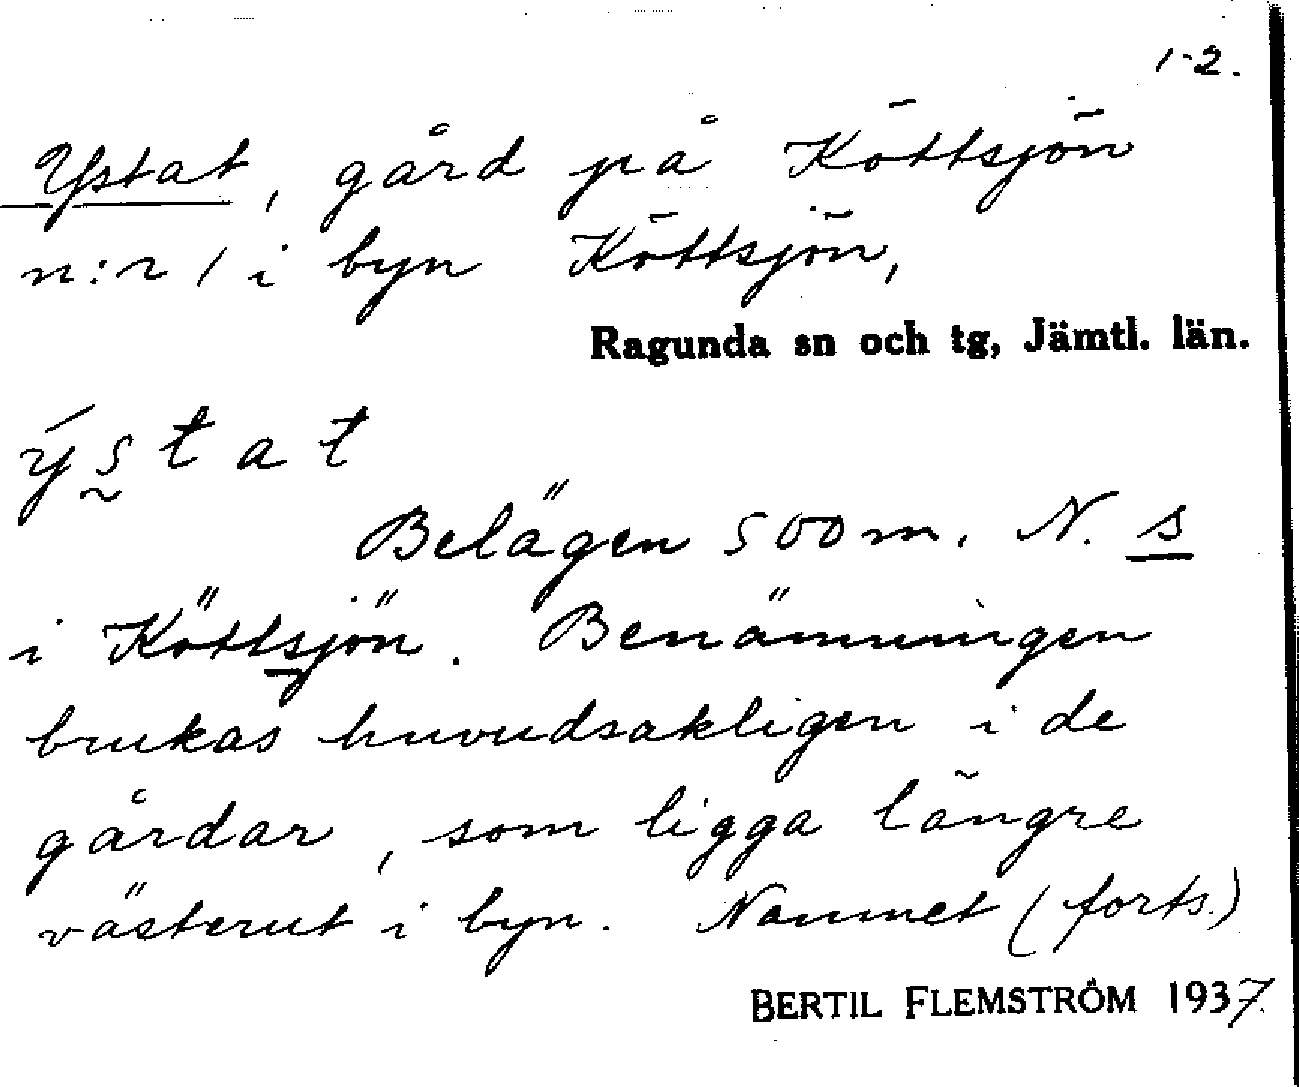 1-2.
Ystat, gård på Köttsjön
n:r 1 i byn Köttsjön,
Ragunda sn och tg, Jämtl. län.
ýs̰tat
Belägen 500 m. N. s
i Köttsjön. Benämningen
brukas huvudsakligen i de
gårdar, som ligga längre
västerut i byn. Namnet (forts.)
BERTIL FLEMSTRÖM 1937.